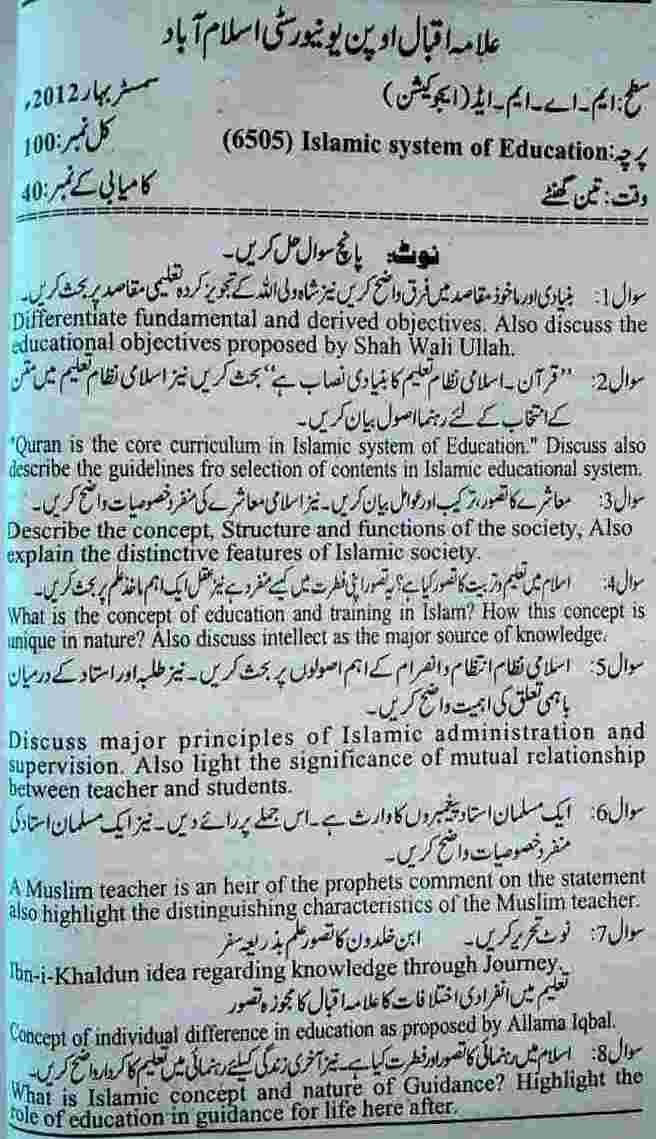 علامہ اقبال اوپن یونیورسٹی اسلام آباد
سطح: ایم۔اے۔ایم۔ایڈ (ایجوکیشن) سمسٹر بہار 2012ء
پرچہ: Islamic system of Education (6505) کل نمبر: 100
وقت: تین گھنٹے کامیابی کے نمبر: 40
نوٹ: پانچ سوال حل کریں۔
سوال 1: بنیادی اور ماخوذ مقاصد میں فرق واضح کریں نیز شاہ ولی اللہ کے تجویز کردہ تعلیمی مقاصد پر بحث کریں۔
Differentiate fundamental and derived objectives. Also discuss the
educational objectives proposed by Shah Wali Ullah.
سوال 2: "قرآن۔اسلامی نظام تعلیم کا بنیادی نصاب ہے" بحث کریں نیز اسلامی نظام تعلیم میں متن
کے انتخاب کے لئے رہنما اصول بیان کریں۔
"Quran is the core curriculum in Islamic system of Education." Discuss also
describe the guidelines fro selection of contents in Islamic educational system.
سوال 3: معاشرے کا تصور، ترکیب اور عوامل بیان کریں۔ نیز اسلامی معاشرے کی منفرد خصوصیات واضح کریں۔
Describe the concept, Structure and functions of the society, Also
explain the distinctive features of Islamic society.
سوال 4: اسلام میں تعلیم و تربیت کا تصور کیا ہے؟ یہ تصور اپنی فطرت میں کیسے منفرد ہے نیز عقل ایک اہم ماخذ علم پر بحث کریں۔
What is the concept of education and training in Islam? How this concept is
unique in nature? Also discuss intellect as the major source of knowledge.
سوال 5: اسلامی نظام انتظام و انصرام کے اہم اصولوں پر بحث کریں۔ نیز طلبہ اور استاد کے درمیان
باہمی تعلق کی اہمیت واضح کریں۔
Discuss major principles of Islamic administration and
supervision. Also light the significance of mutual relationship
between teacher and students.
سوال 6: ایک مسلمان استاد پیغمبروں کا وارث ہے۔ اس جملے پر رائے دیں۔ نیز ایک مسلمان استاد کی
منفرد خصوصیات واضح کریں۔
A Muslim teacher is an heir of the prophets comment on the statement
also highlight the distinguishing characteristics of the Muslim teacher.
سوال 7: نوٹ تحریر کریں۔ ابن خلدون کا تصور علم بذریعہ سفر
Ibn-i-Khaldun idea regarding knowledge through Journey.
تعلیم میں انفرادی اختلافات کا علامہ اقبال کا مجوزہ تصور
Concept of individual difference in education as proposed by Allama Iqbal.
سوال 8: اسلام میں رہنمائی کا تصور اور فطرت کیا ہے۔ نیز آخری زندگی کیلئے رہنمائی میں تعلیم کا کردار واضح کریں۔
What is Islamic concept and nature of Guidance? Highlight the
role of education in guidance for life here after.